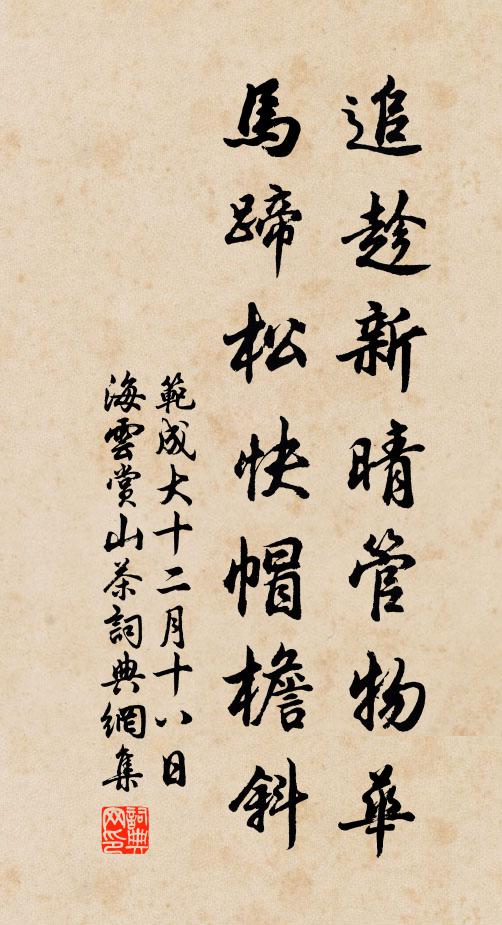 追趁新晴管物華
馬蹄松快帽檐斜
範成大十二月十八日
海雲賞山茶詞典網集
詞典
网印